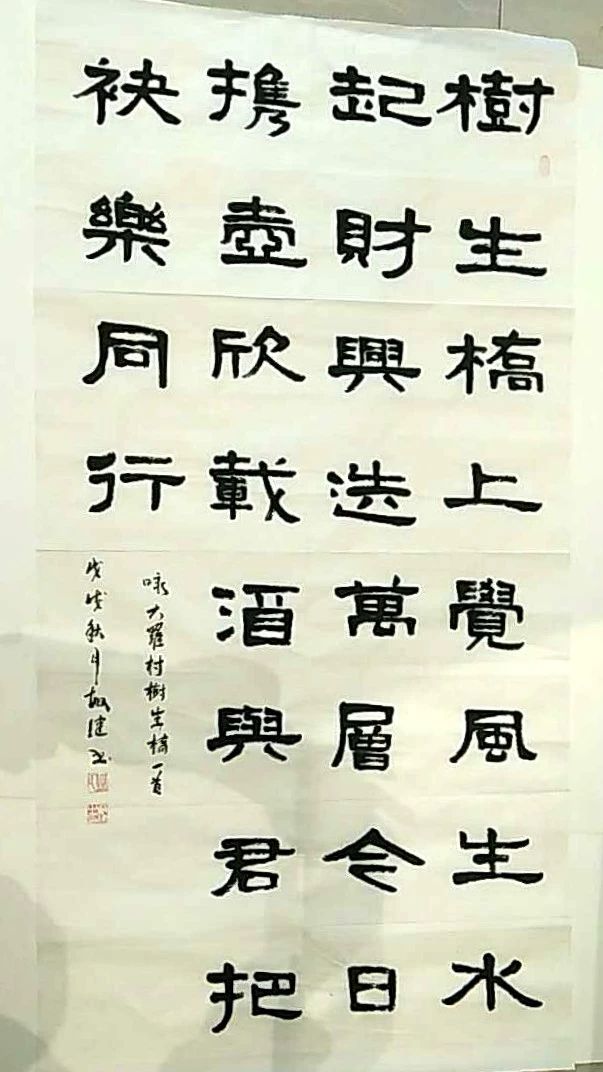 樹生橋上覺風生水
起財興送萬層今日
攜壺欣載酒與君把
袂樂同行
咏大羅村樹生橋一首
戊戌秋月 健书